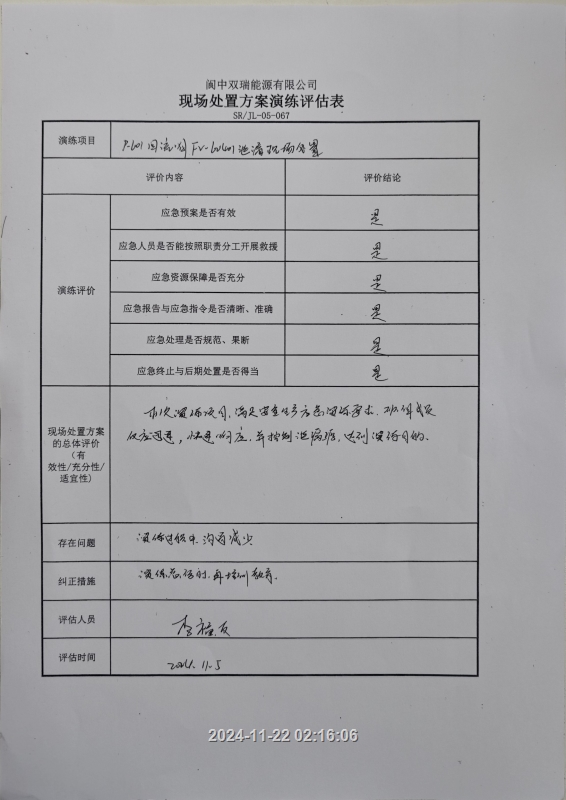 阆中双瑞能源有限公司
现场处置方案演练评估表
SR/JL-05-067
演练项目
回流阀 泄漏现场处置
评价内容 评价结论
演练评价
应急预案是否有效 是
应急人员是否能按照职责分工开展救援 是
应急资源保障是否充分 是
应急报告与应急指令是否清晰、准确 是
应急处理是否规范、果断 是
应急终止与后期处置是否得当 是
现场处置方案
的总体评价
(有
效性/充分性/
适宜性)
本次演练项目,满足安全生产方面演练要求,班组成员
反应迅速,快速响应,并控制泄漏源,达到演练目的.
存在问题 演练过程中,沟通减少
纠正措施 演练总结时,再培训教育.
评估人员 李
评估时间 2024.11.5
2024-11-22 02:16:06